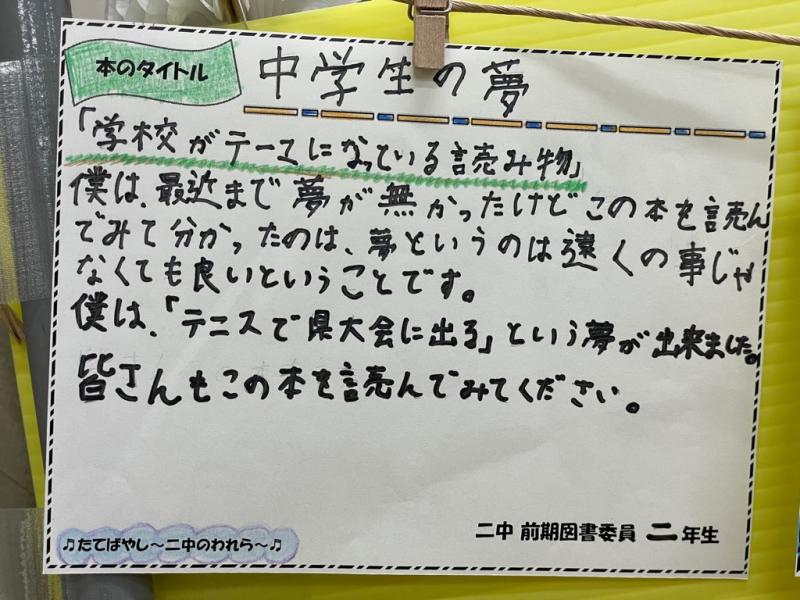 本のタイトル 中学生の夢
「学校がテーマになっている読み物」
僕は、最近まで夢が無かったけどこの本を読ん
でみて分かったのは、夢というのは遠くの事じゃ
なくても良いということです。
僕は、「テニスで県大会に出る」という夢が出来ました。
皆さんもこの本を読んでみてください。
二中 前期図書委員 二年生
♫たてばやし～二中のわれら～♫